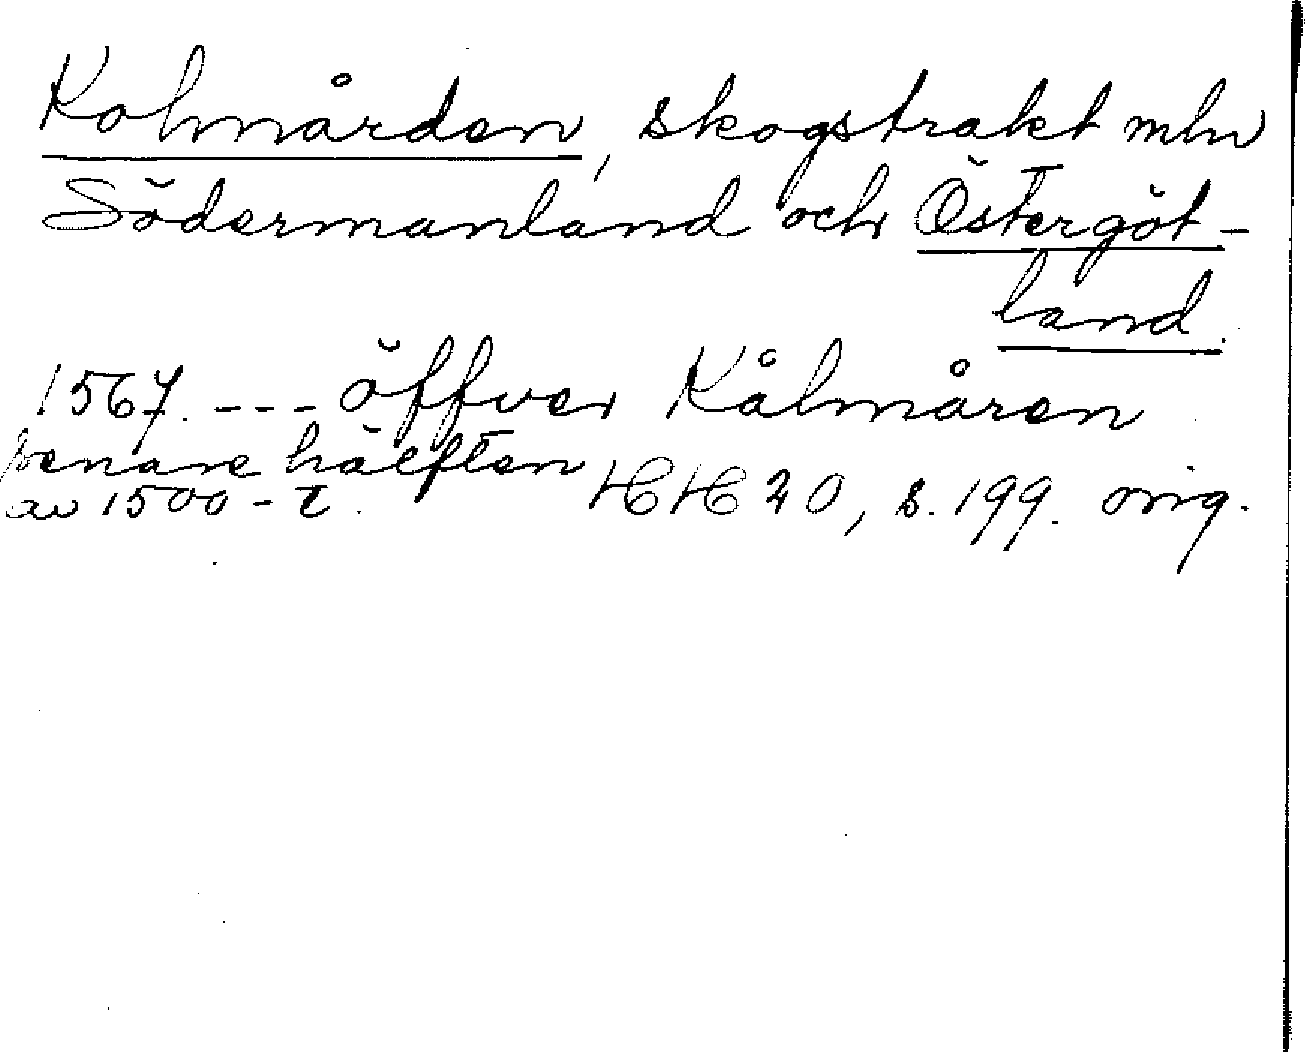 Kolmården, skogstrakt mln
Södermanland och Östergöt-
land.
1567. --- öffver Kålmåren
senare hälften
av 1500-t. HH 20, s. 199. orig.